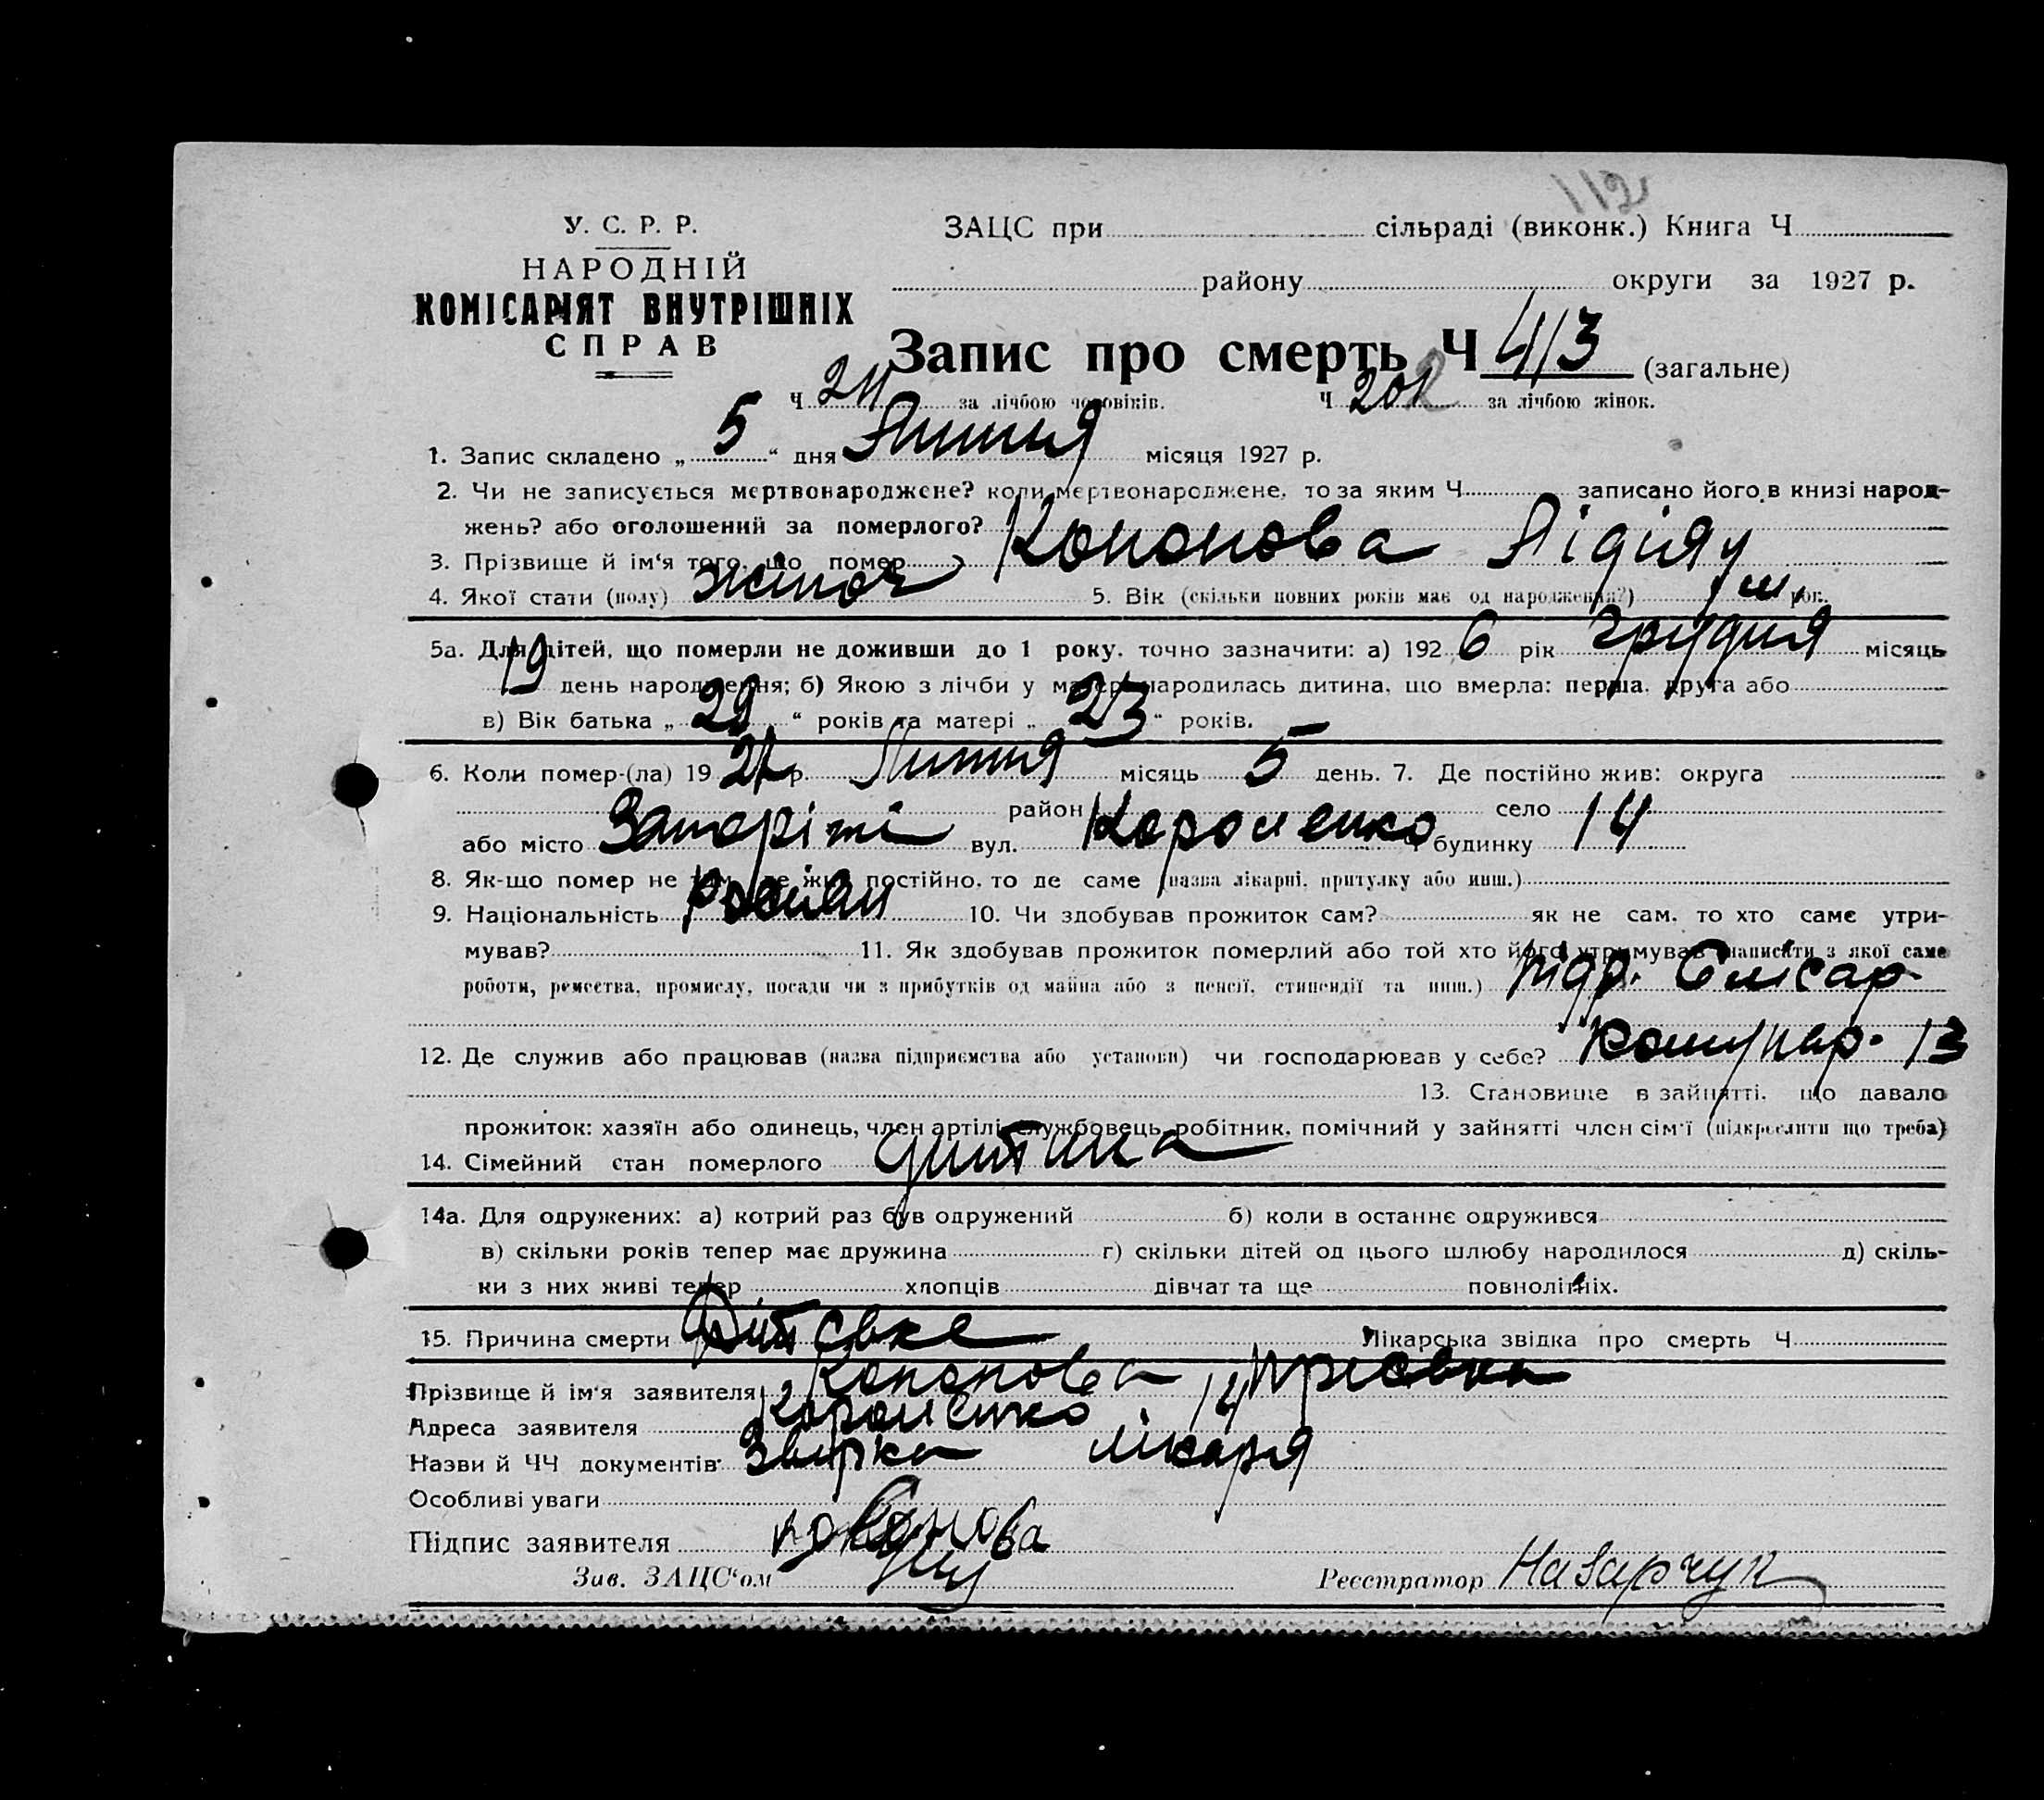 112
У. С. Р. Р.
НАРОДНІЙ
КОМІСАРІЯТ ВНУТРІШНІХ
СПРАВ
ЗАЦС при сільраді (виконк.) Книга Ч
району округи за 1927 р.
Запис про смерть Ч 413 (загальне)
Ч 211 за лічбою чоловіків. Ч 202 за лічбою жінок.
1. Запис складено „ 5 “ дня Липня місяця 1927 р.
2. Чи не записується мертвонароджене? коли мертвонароджене, то за яким Ч записано його в книзі народ-
жень? або оголошений за померлого?
3. Прізвище й ім'я того, що помер Кононова Лідія
4. Якої стати (полу) жіноч 5. Вік (скільки повних років має од народження?) рок.
5а. Для дітей, що померли не доживши до 1 року, точно зазначити: а) 192 6 рік грудня місяць
19 день народження; б) Якою з лічби у матері народилась дитина, що вмерла: перша, друга або
в) Вік батька „ 29 “ років та матері „ 23 “ років.
6. Коли помер-(ла) 19 27 р. Липня місяць 5 день. 7. Де постійно жив: округа
район село
або місто Запоріжжі вул. Короленко будинку 14
8. Як-що помер не там, де жив постійно, то де саме (назва лікарні, притулку або инш.)
9. Національність росіян 10. Чи здобував прожиток сам? як не сам, то хто саме утри-
мував? 11. Як здобував прожиток померлий або той хто його утримував (написати з якої саме
роботи, ремества, промислу, посади чи з прибутків од майна або з пенсії, стипендії та инш.) підр. Слісар
12. Де служив або працював (назва підприємства або установи) чи господарював у себе? Комунар. 13
13. Становище в зайнятті, що давало
прожиток: хазяїн або одинець, член артілі, службовець, робітник, помічний у зайнятті член сім'ї (підкреслити що треба)
14. Сімейний стан померлого дитина
14а. Для одружених: а) котрий раз був одружений б) коли в останнє одружився
в) скільки років тепер має дружина г) скільки дітей од цього шлюбу народилося д) скіль-
ки з них живі тепер хлопців дівчат та ще повнолітніх.
15. Причина смерти Дитєвке Лікарська звідка про смерть Ч
Прізвище й ім'я заявителя Кононова
Адреса заявителя Короленко 14
Назви й ЧЧ документів Звірка лікаря
Особливі уваги
Підпис заявителя Кононова
Зав. ЗАЦС'ом Реєстратор Назарчук